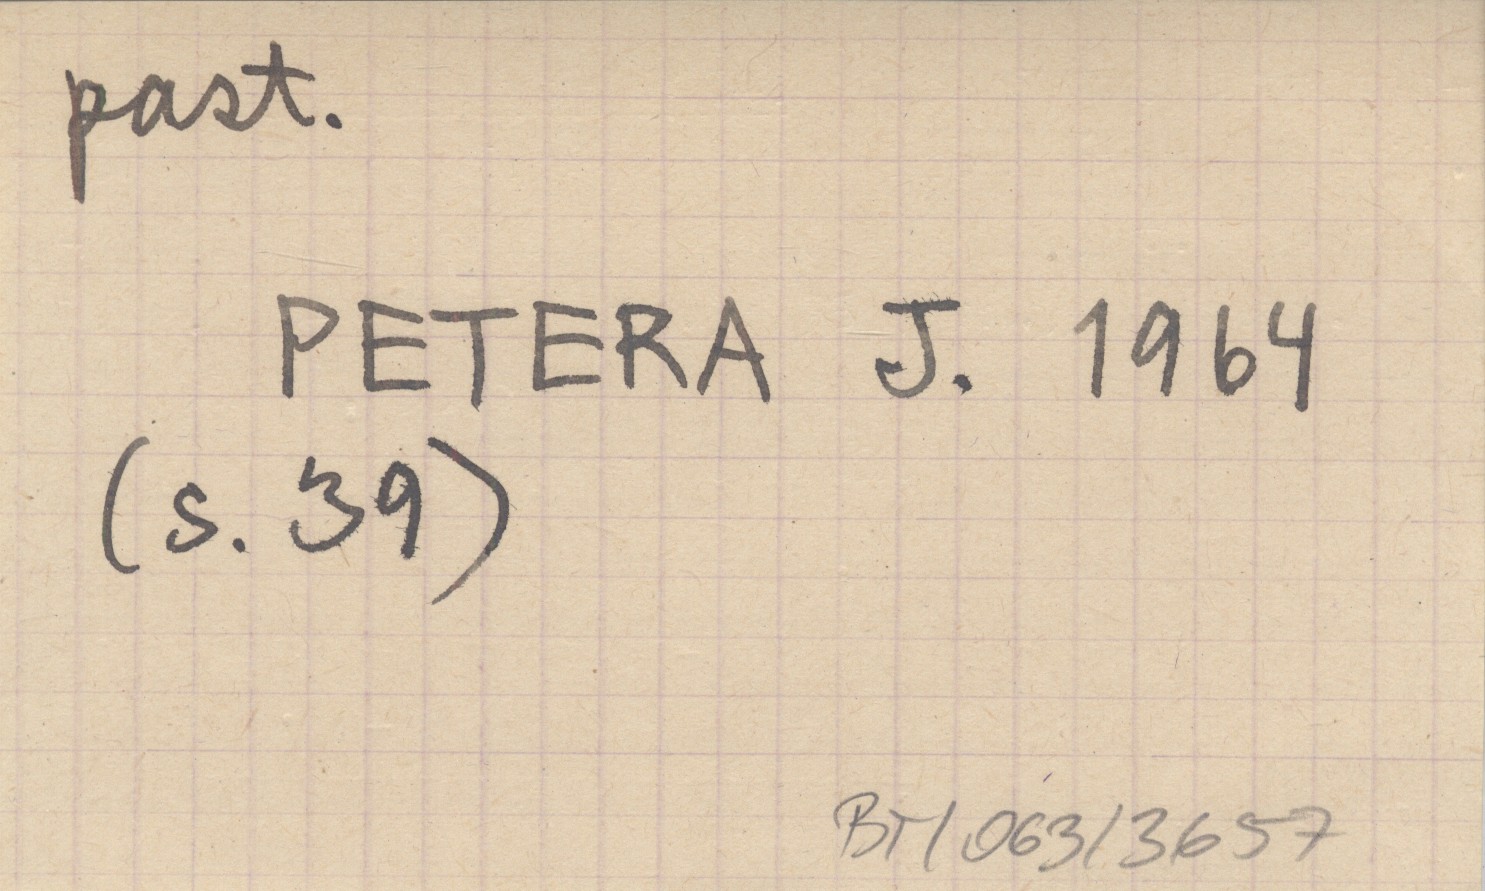 past.
PETERA J. 1964
(s. 39)
BT/063/3657